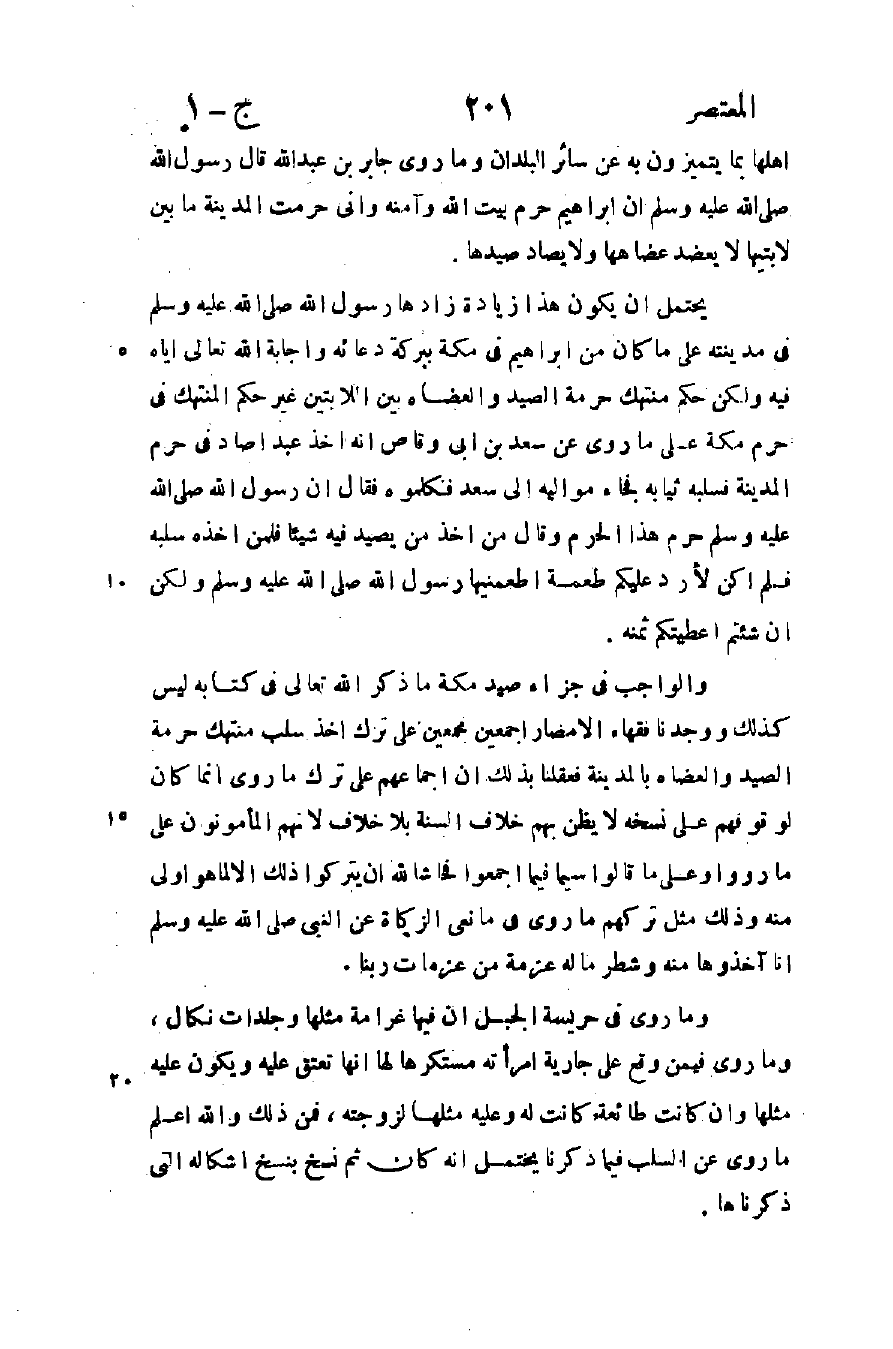 المعتصر ٢٠١ ج - ١
اهلها بما يتميزون به عن سائر البلدان وما روى جابر بن عبدالله قال رسول الله
صلى الله عليه وسلم ان ابراهيم حرم بيت الله وآمنه وانى حرمت المدينة ما بين
لابتيها لا يعضد عضاهها ولا يصاد صيدها .
يحتمل ان يكون هذا زيادة زادها رسول الله صلى الله عليه وسلم
فى مدينته على ما كان من ابراهيم فى مكة ببركة دعائه واجابة الله تعالى اياه ٥
فيه ولكن حكم منتهك حرمة الصيد والعضاه بين اللابتين غير حكم المنتهك فى
حرم مكة على ما روى عن سعد بن ابى وقاص انه اخذ عبدا صاد فى حرم
المدينة فسلبه ثيابه فجاء مواليه الى سعد فكلموه فقال ان رسول الله صلى الله
عليه وسلم حرم هذا الحرم وقال من اخذ من يصيد فيه شيئا فلمن اخذه سلبه
فلم اكن لأرد عليكم طعمة اطعمنيها رسول الله صلى الله عليه وسلم ولكن ١٠
ان شئتم اعطيتكم ثمنه .
والواجب فى جزاء صيد مكة ما ذكر الله تعالى فى كتابه ليس
كذلك ووجدنا فقهاء الامصار اجمعين مجمعين على ترك اخذ سلب منتهك حرمة
الصيد والعضاه بالمدينة فعقلنا بذلك ان اجماعهم على ترك ما روى انما كان
لوقوفهم على نسخه لا يظن بهم خلاف السنة بلا خلاف لانهم المأمونون على ١٥
ما رووا وعلى ما قالوا سيما فيما اجمعوا فحاشا لله ان يتركوا ذلك الا لما هو اولى
منه وذلك مثل تركهم ما روى فى مانعى الزكاة عن النبى صلى الله عليه وسلم
انا آخذوها منه وشطر ماله عزمة من عزمات ربنا .
وما روى فى حريسة الجبل ان فيها غرامة مثلها وجلدات نكال ،
وما روى فيمن وقع على جارية امرأته مستكرها لها انها تعتق عليه ويكون عليه ٢٠
مثلها وان كانت طائعة كانت له وعليه مثلها لزوجته ، فمن ذلك والله اعلم
ما روى عن السلب فيما ذكرنا يحتمل انه كان ثم نسخ بنسخ اشكاله التى
ذكرناها .